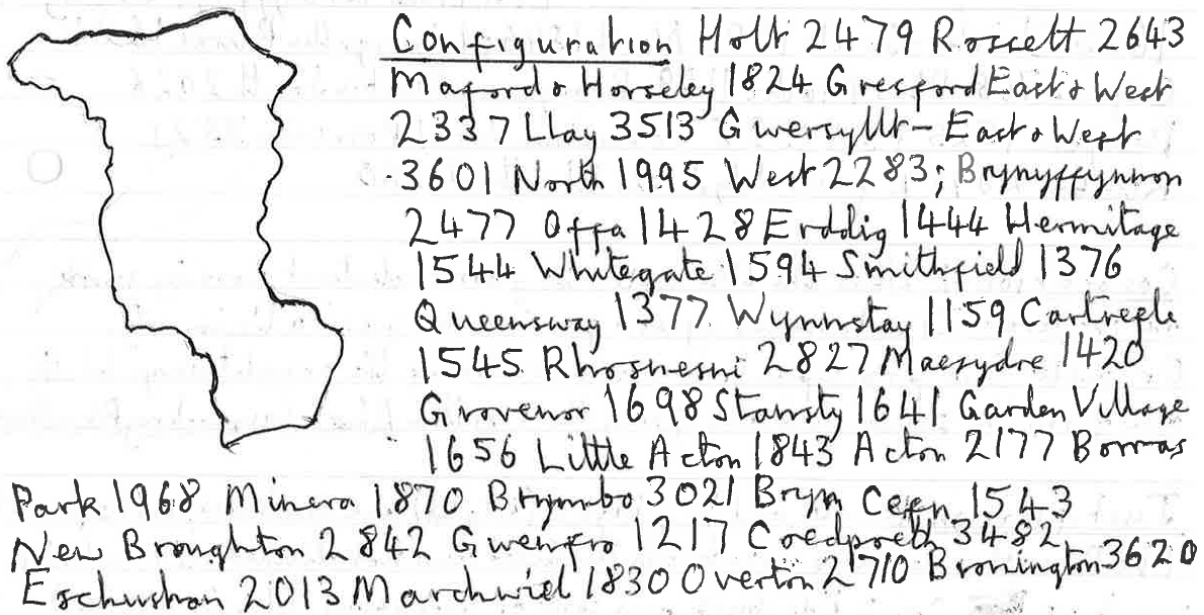 Configuration Holt 2479 Rossett 2643
Maford & Horseley 1824 Gresford East & West
2337 Llay 3513 Gwersyllt - East & West
3601 North 1995 West 2283; Brynyffynnon
2477 Offa 1428 Erddig 1444 Hermitage
1544 Whitegate 1594 Smithfield 1376
Queensway 1377 Wynnstay 1159 Cartrefle
1545 Rhosnesni 2827 Maesydre 1420
Grovenor 1698 Stansty 1641 Garden Village
1656 Little Acton 1843 Acton 2177 Borras
Park 1968 Minera 1870 Brymbo 3021 Bryn Cefn 1543
New Broughton 2842 Gwenfro 1217 Coedpoeth 3482
Esclusham 2013 Marchwiel 1830 Overton 2710 Bronington 3620